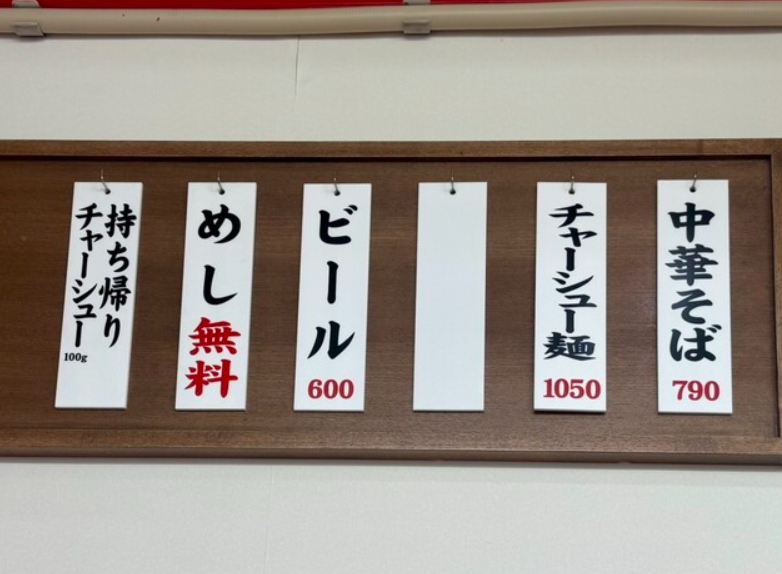 中華そば
790
チャーシュー麺
1050
ビール
600
めし無料
持ち帰り
チャーシュー
100g